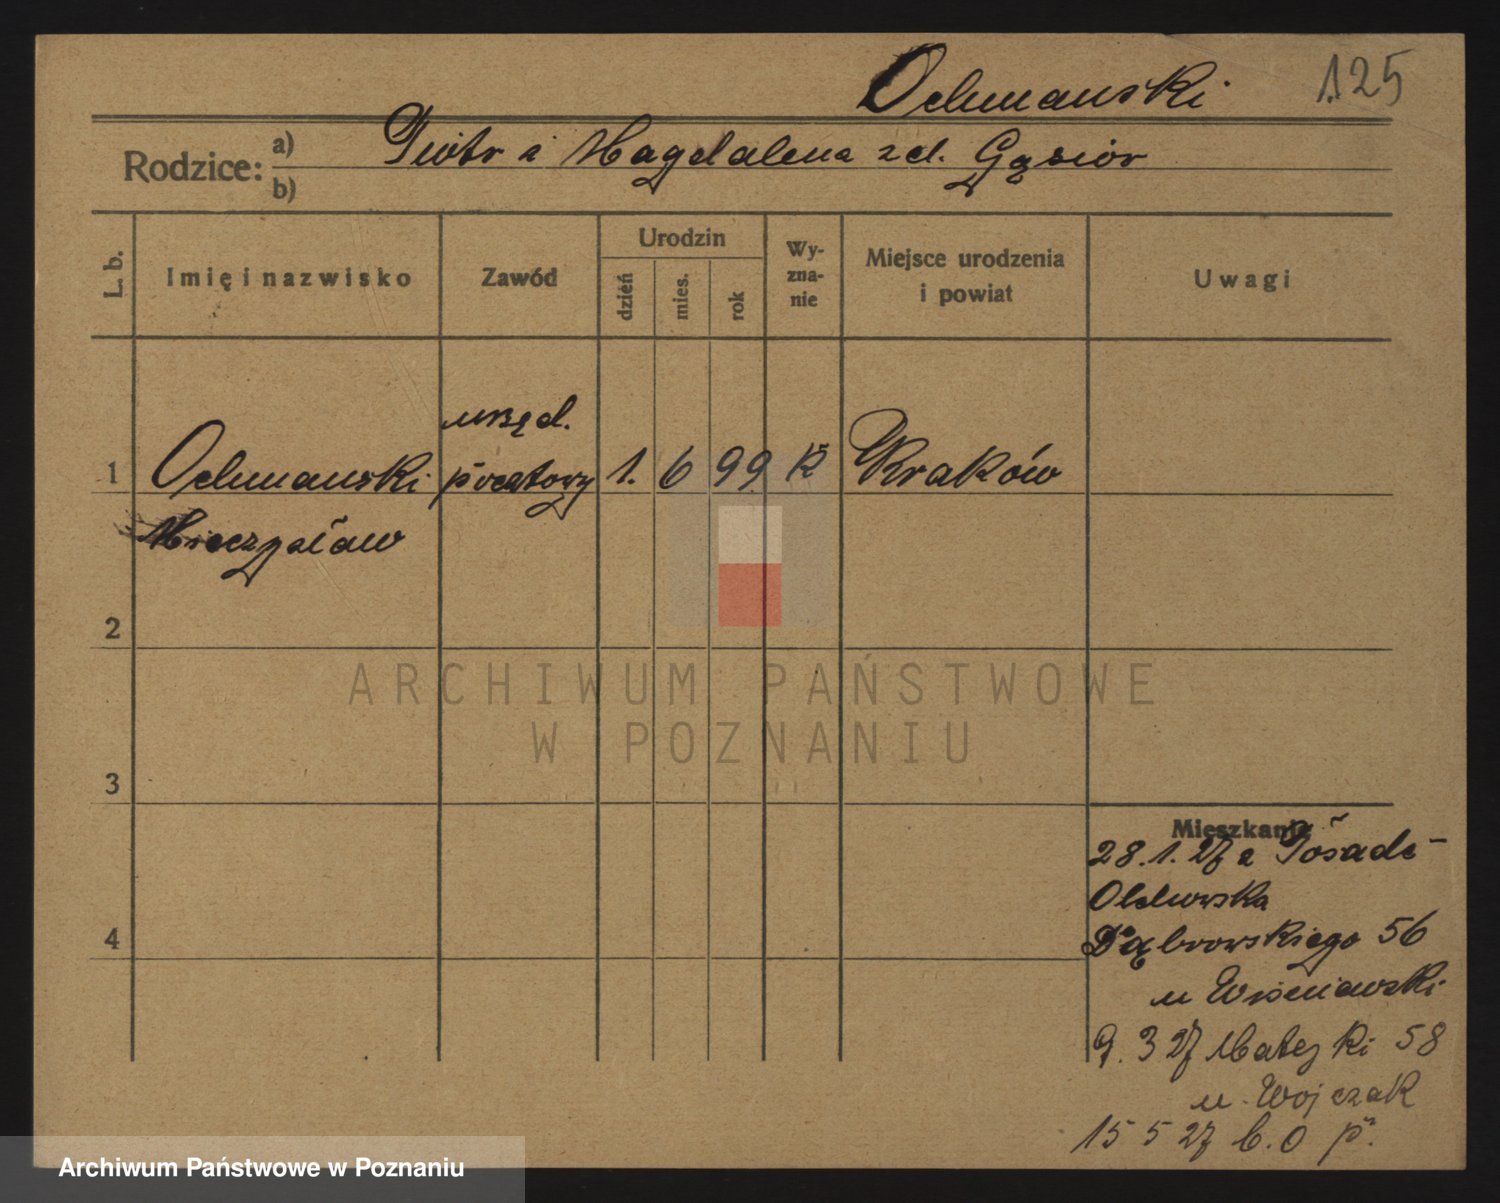 Ochmanski 125
Rodzice: a) Piotr i Magdalena zd. Gąsior
b)
L. b. Imię i nazwisko Zawód Urodzin dzień mies. rok Wy-zna-nie Miejsce urodzenia i powiat Uwagi
urzęd.
1 Ochmanski pocztowy 1. 6 99 k Kraków
Mieczysław
2
3
4
Mieszkanie
28.1.27 z Posada
Olchowska
Dąbrowskiego 56
u Wiśniewski
9. 3 27 Matejki 58
u. Wojczak
15 5 27
ARCHIWUM PAŃSTWOWE
W POZNANIU
Archiwum Państwowe w Poznaniu